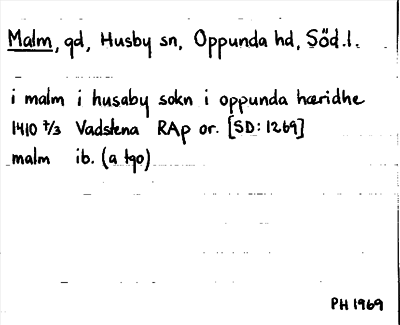 Malm, gd, Husby sn, Oppunda hd, Söd.l.
i malm i husaby sokn i oppunda hæridhe
1410 7/3 Vadstena RAp or. [SD: 1269]
malm ib. (a tgo)
PH 1969